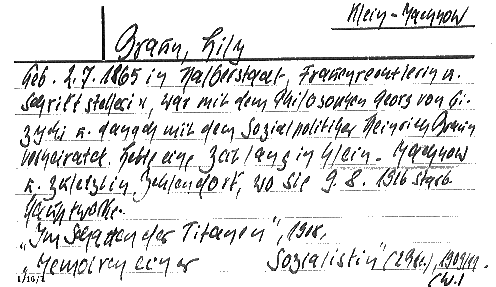 Klein-Machnow
Braun, Lily
Geb. 2.7.1865 in Halberstadt, Frauenrechtlerin u.
Schriftstellerin, war mit dem Philosophen Georg von Gi-
zycki u. danach mit dem Sozialpolitiker Heinrich Braun
verheiratet. Lebte eine Zeitlang in Klein-Machnow
u. zuletzt in Zehlendorf, wo sie 9.8.1916 starb.
Hauptwerke:
„Im Schatten der Titanen", 1908,
„Memoiren einer Sozialistin" (2 Bde.), 1909/11